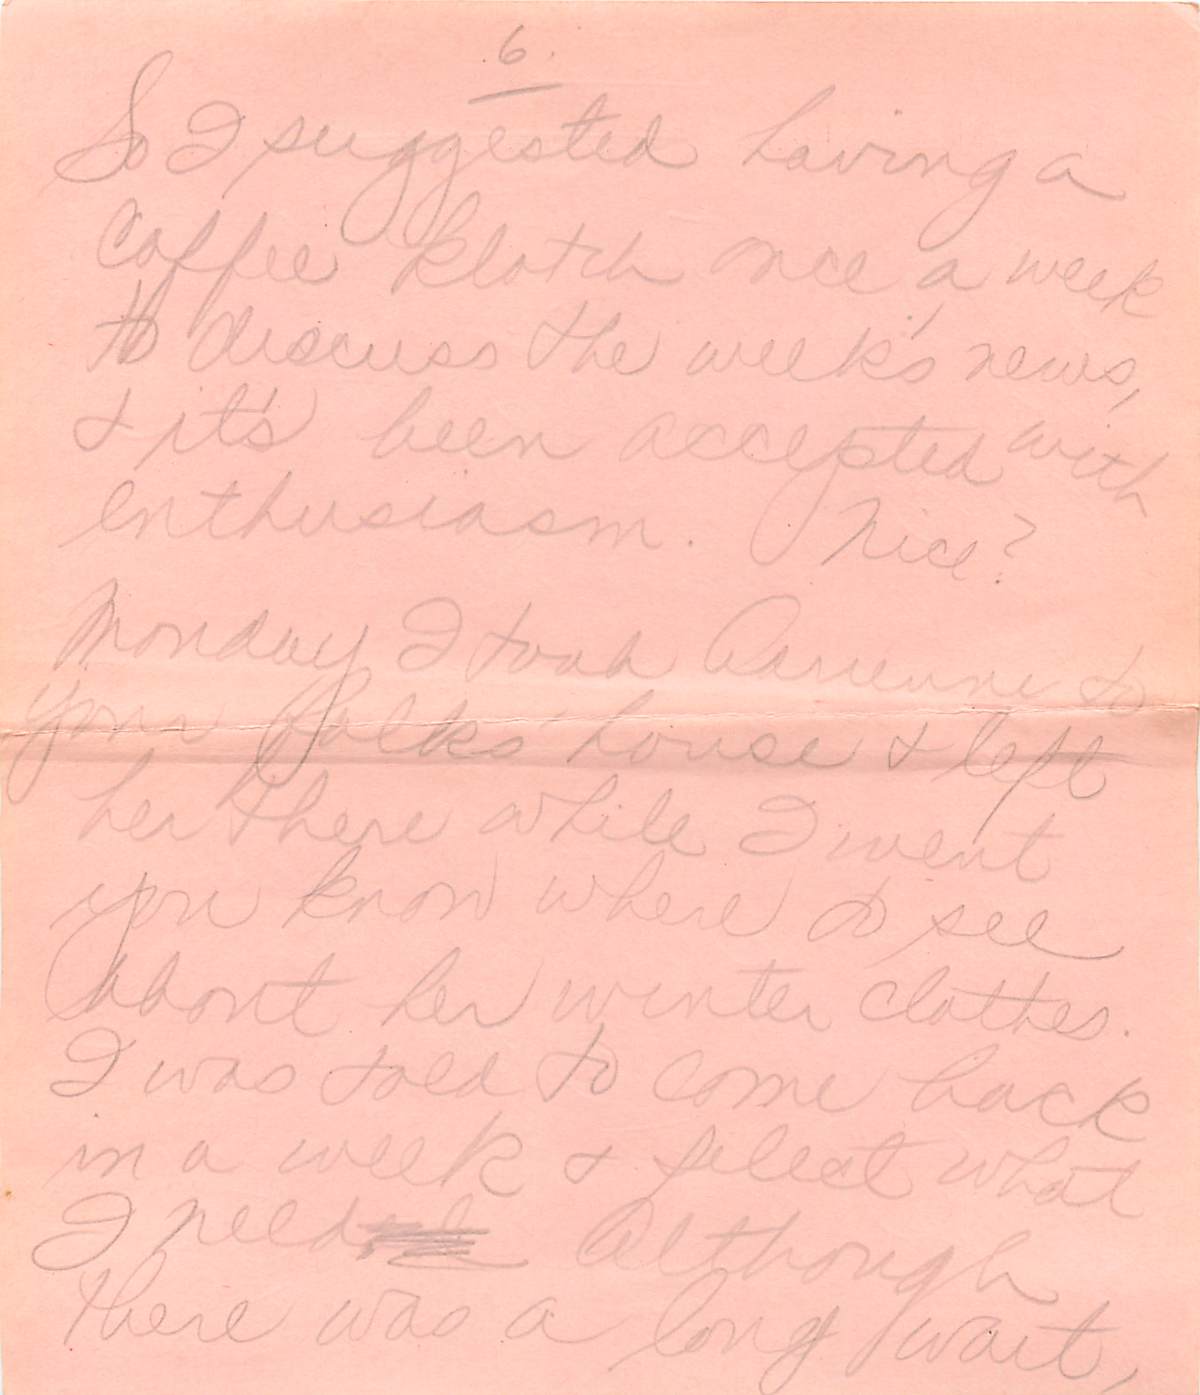 6.
So I suggested having a
coffee klotch once a week
to discuss the week's news,
& it's been accepted with
enthusiasm. Nice?
Monday I took Arrienne to
your folks house & left
her there while I went
you know where to see
about her winter clothes.
I was told to come back
in a week & select what
I need Although
there was a long wait,